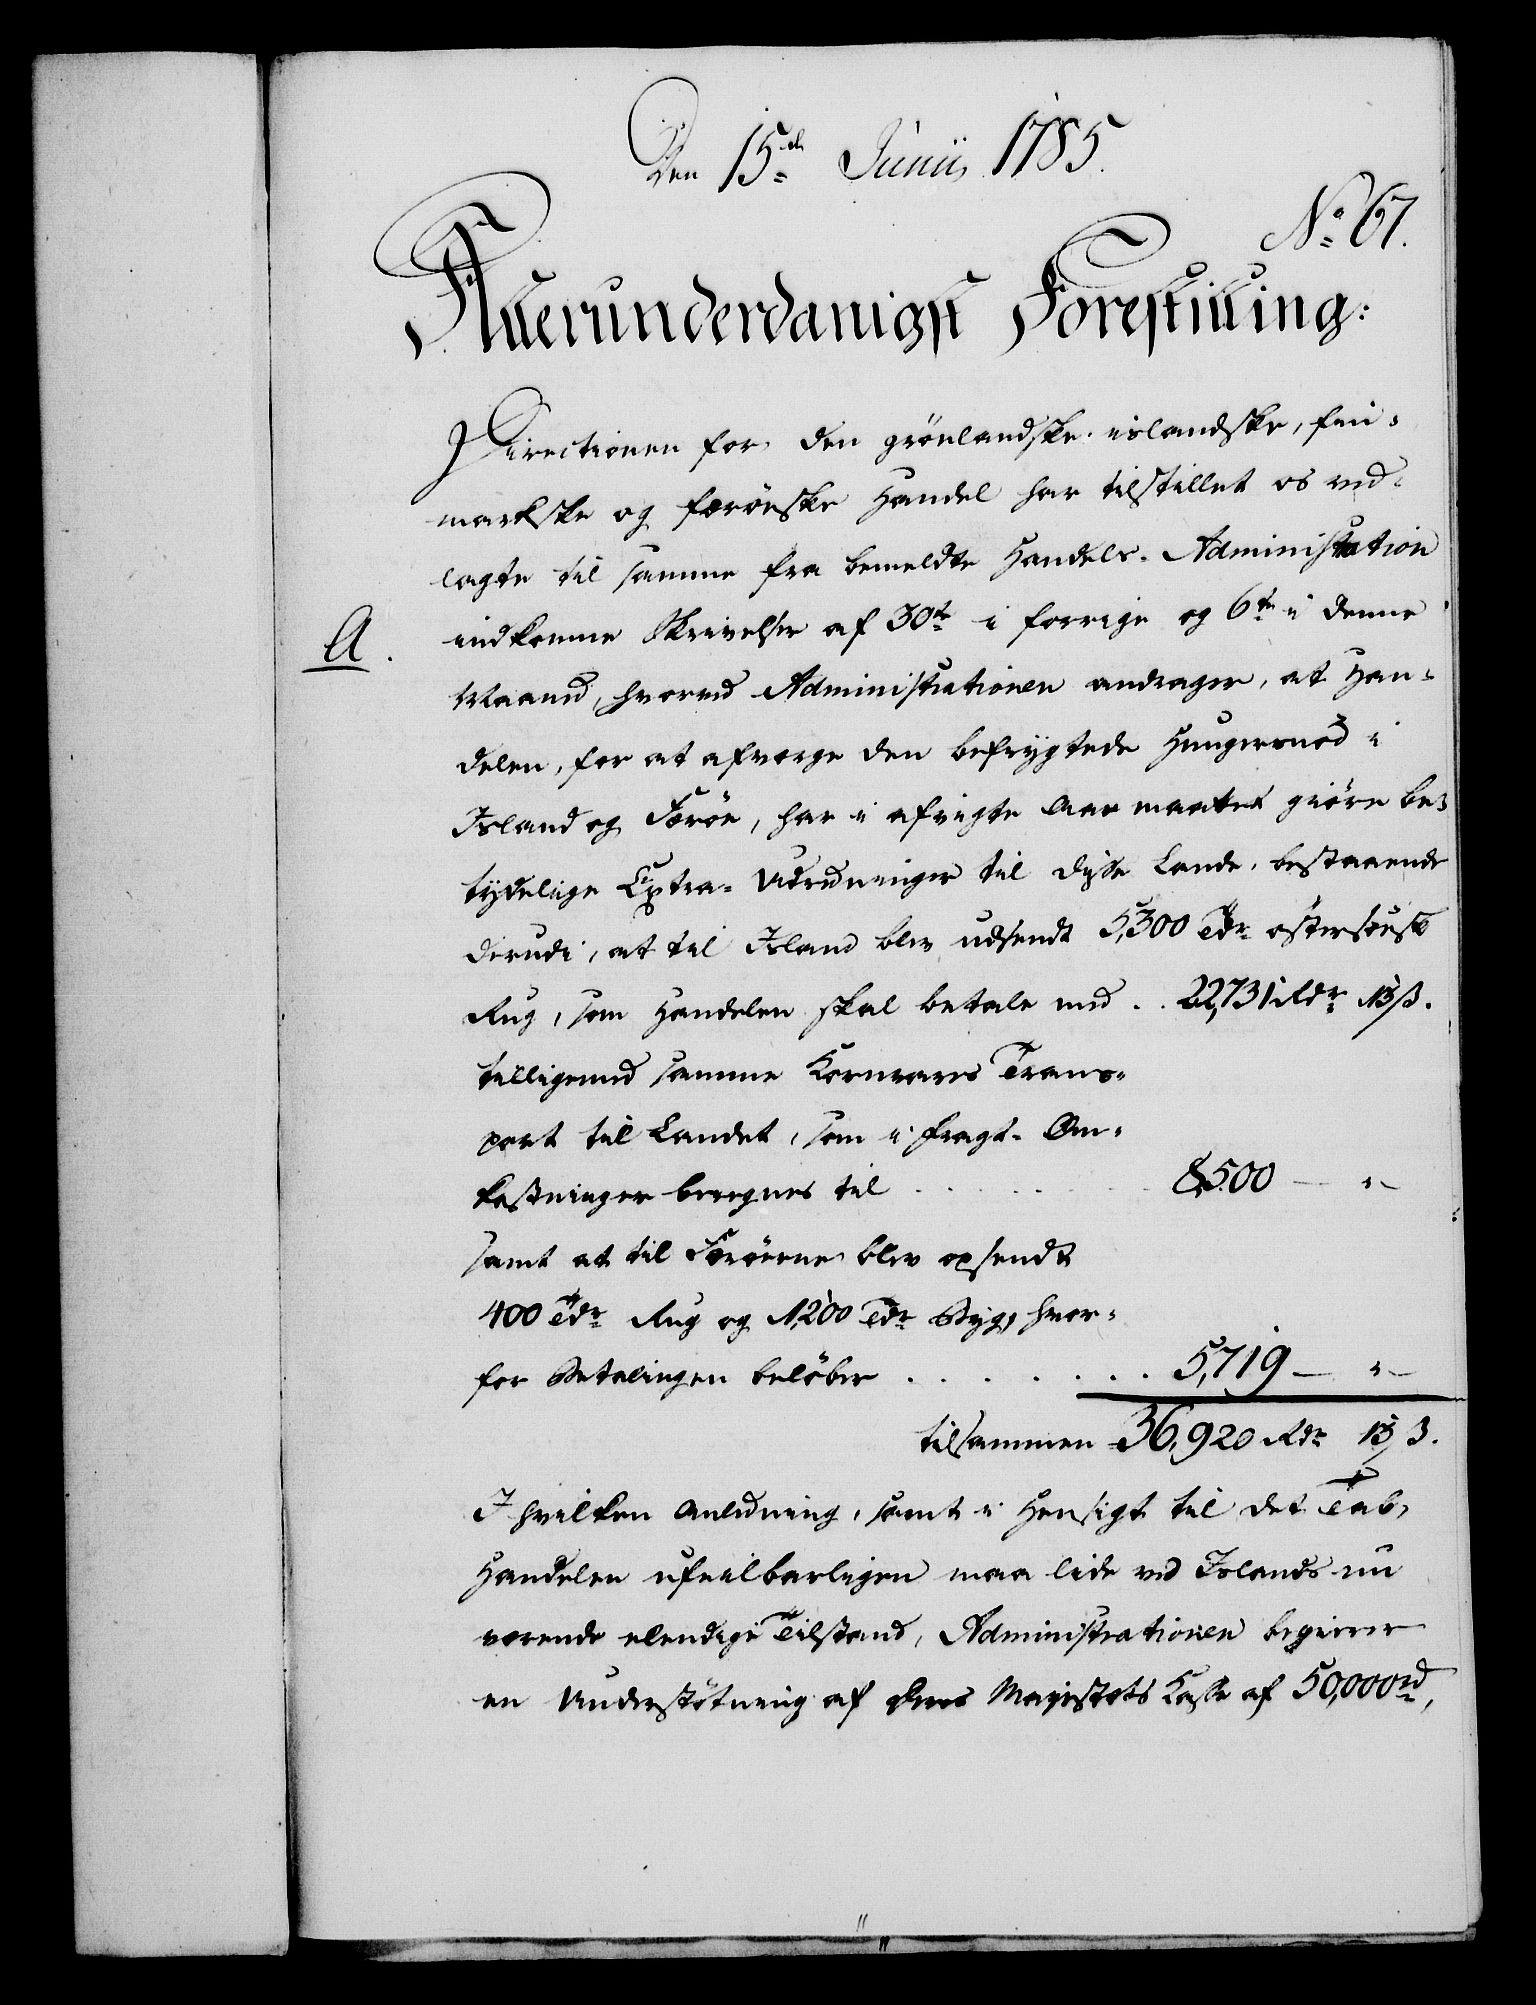 Den 15de Junii 1785.
No 67.
Allerunderdanigst Forestilling:
Directionen for den grönlandske, islandske, fin-
markske og færöeske Handel har tilstillet os ved-
lagte til samme fra bemeldte Handels-Administration
A.
indkomne Skrivelser af 30te i forrige og 6te i denne
Maaned, hvorved Administrationen andrager, at Han-
delen, for at afværge den befrygtede Hungersnöd i
Island og Færöe, har i afvigte Aar maattet giöre be-
tydelige Extra-Udredninger til disse Lande, bestaaende
derudi, at til Island blev udsendt 5,300 Tdr östersöisk
Rug, som Handelen skal betale med .. 22,731 Rdr 13 ß.
tilligemed samme Kornvares Trans-
port til Landet, som i Fragt-Om-
kostninger beregnes til . . . . . . 8,500 — " —
samt at til Færöerne blev opsendt
400 Tdr Rug og 1,200 Tdr Byg, hvor-
for Betalingen belöber . . . . . . . 5,719 — " —
tilsammen 36,920 Rdr 13 ß.
I hvilken Anledning, samt i Hensigt til det Tab,
Handelen ufeilbarligen maa lide ved Islands nu
værende elendige Tilstand, Administrationen begierer
en Understötning af Deres Majestæts Kasse af 50,000 rd,